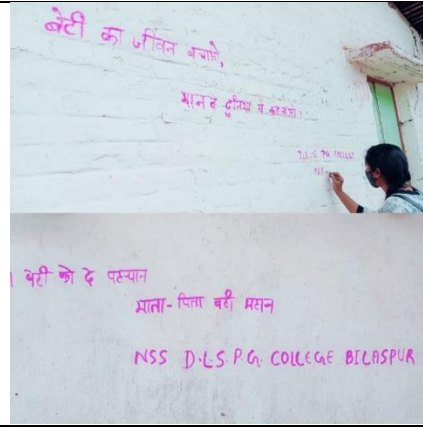 बेटी का जीवन बचाओ,
मानव दुनिया में
D.L.S PG COLLEGE
बेटी को दे पहचान
माता-पिता वही महान
NSS D.L.S. P.G. COLLEGE BILASPUR